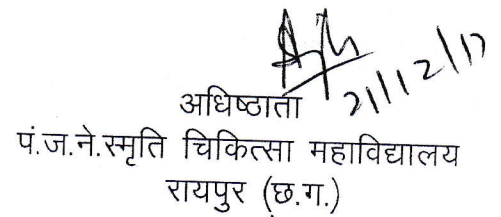 21/12/17
अधिष्ठाता
पं.ज.ने.स्मृति चिकित्सा महाविद्यालय
रायपुर (छ.ग.)